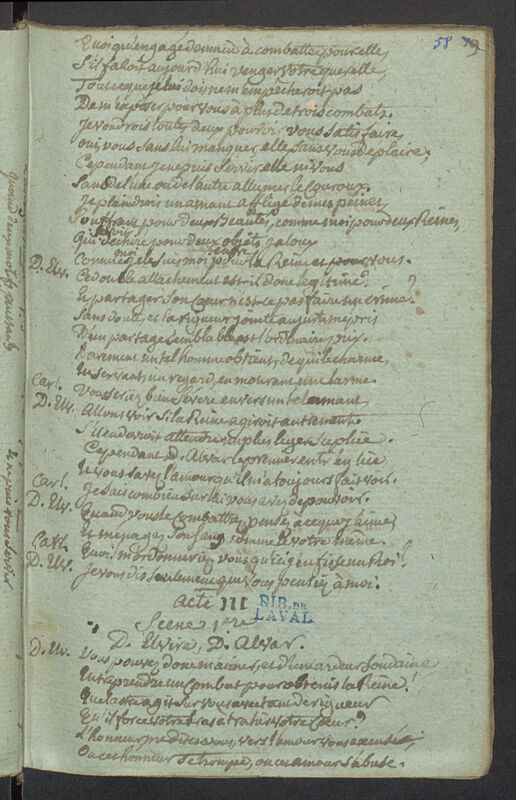 58 79
Quoiqu'engagé demain à combattre pour elle,
S'il faloit aujourd'hui venger votre querelle,
Tout ce que je lui dois ne m'empêcheroit pas
De m'exposer pour vous à plus de trois combats.
Je voudrois toutes deux pouvoir vous satisfaire,
oui, vous sans lui manquer, elle sans vous déplaire,
Cependant je ne puis servir elle ni vous
Sans de l'une ou de l'autre allumer le couroux.
Je plaindrois un amant affligé de mes peines,
Souffrant pour deux Beautés, comme moi pour deux Reines,
Qui pour deux objets jaloux
Comme je moi pour la Reine et pour vous.
D. Elv. Ce double attachement est-il donc légitime?
Et partager son cœur n'est-ce pas faire un crime?
Sans doute, et la rigueur jointe au juste mépris
D'un partage semblable est l'ordinaire prix.
Rarement un tel homme obtient, de qui le charme,
En servant, un regard, en mourant une larme.
Carl. Vous seriez bien sévère envers un tel amant
D. Elv. Allons voir si la Reine agiroit autrement.
S'il en devroit attendre un plus léger suplice.
Cependant D. Alvar le premier entr'en lice
Et vous savez l'amour qu'il m'a toujours fait voir.
Carl. Je sais combien sur lui vous avez de pouvoir.
D. Elv. Quand vous le combattrez, pensez à ce que j'aime,
Et ménagez son sang comme le votre même.
Carl. Quoi! m'ordonneriez vous qu'ici j'en fisse un Roi?
D. Elv. Je vous dis seulement que vous pensiez à moi.
Acte III
BIB. DE LAVAL
Scene 1ere
D. Elvire, D. Alvar.
D. Elv. Vous pouvez donc m'aimer, et d'une ardeur soudaine
Entreprendre un combat pour obtenir la Reine!
Quel astre agit sur vous avec tant de rigueur
Qu'il force votre bras à trahir votre cœur?
L'honneur, me dites-vous, vers l'amour vous excuse,
Ou cet honneur se trompe, ou cet amour s'abuse.